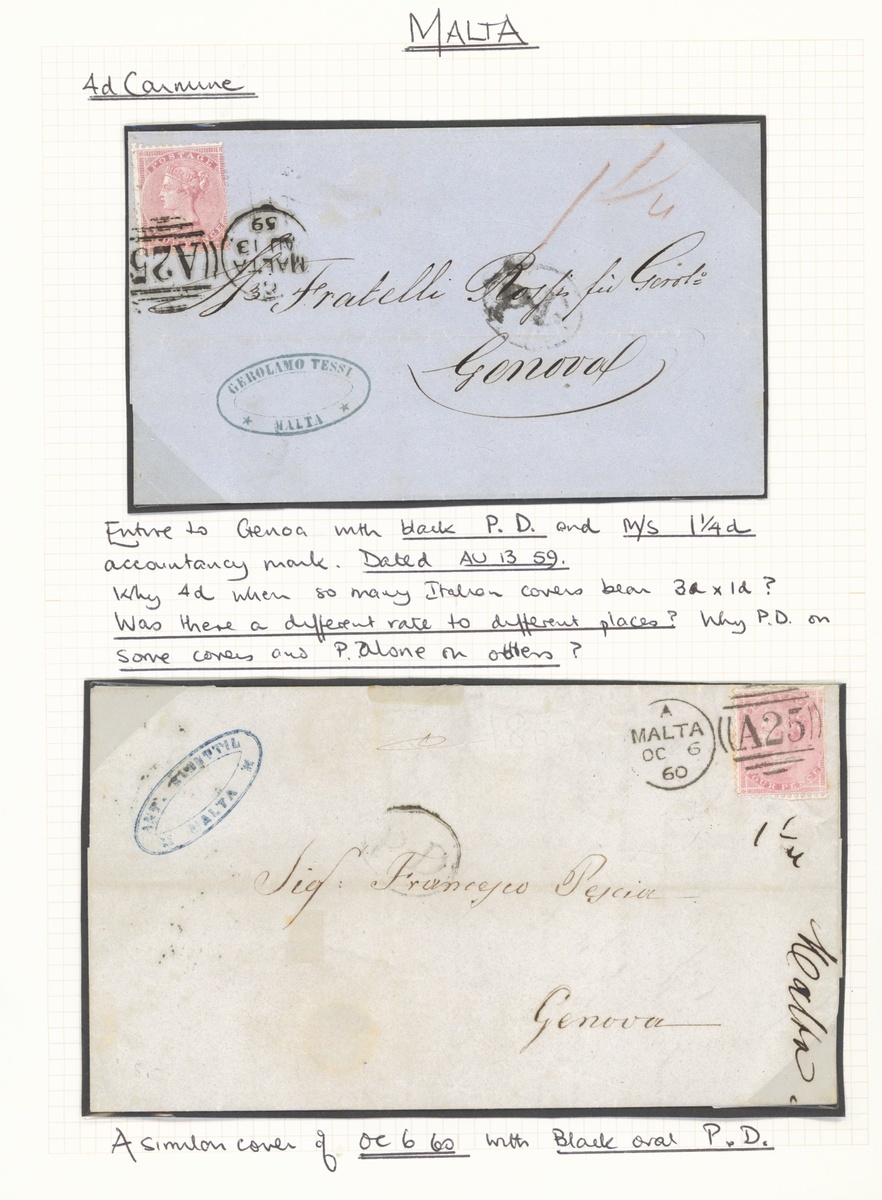 MALTA
4d Carmine
POSTAGE
A25
MALTA
AU 13
59
1 1/4
Fratelli Rossi fu Girolº
Genova
GEROLAMO TESSI
MALTA
Entire to Genoa with black P. D. and M/S 1 1/4 d
accountancy mark. Dated AU 13 59.
Why 4d when so many Italian covers bear 3d x 1d ?
Was there a different rate to different places? Why P.D. on
some covers and P. Alone on others ?
A
MALTA
OC 6
60
A25
FOUR PENCE
ANT.
MALTA
PD
Sigr. Francesco Pescia
Genova
Malta
A similar cover of OC 6 60 with Black oval P.D.